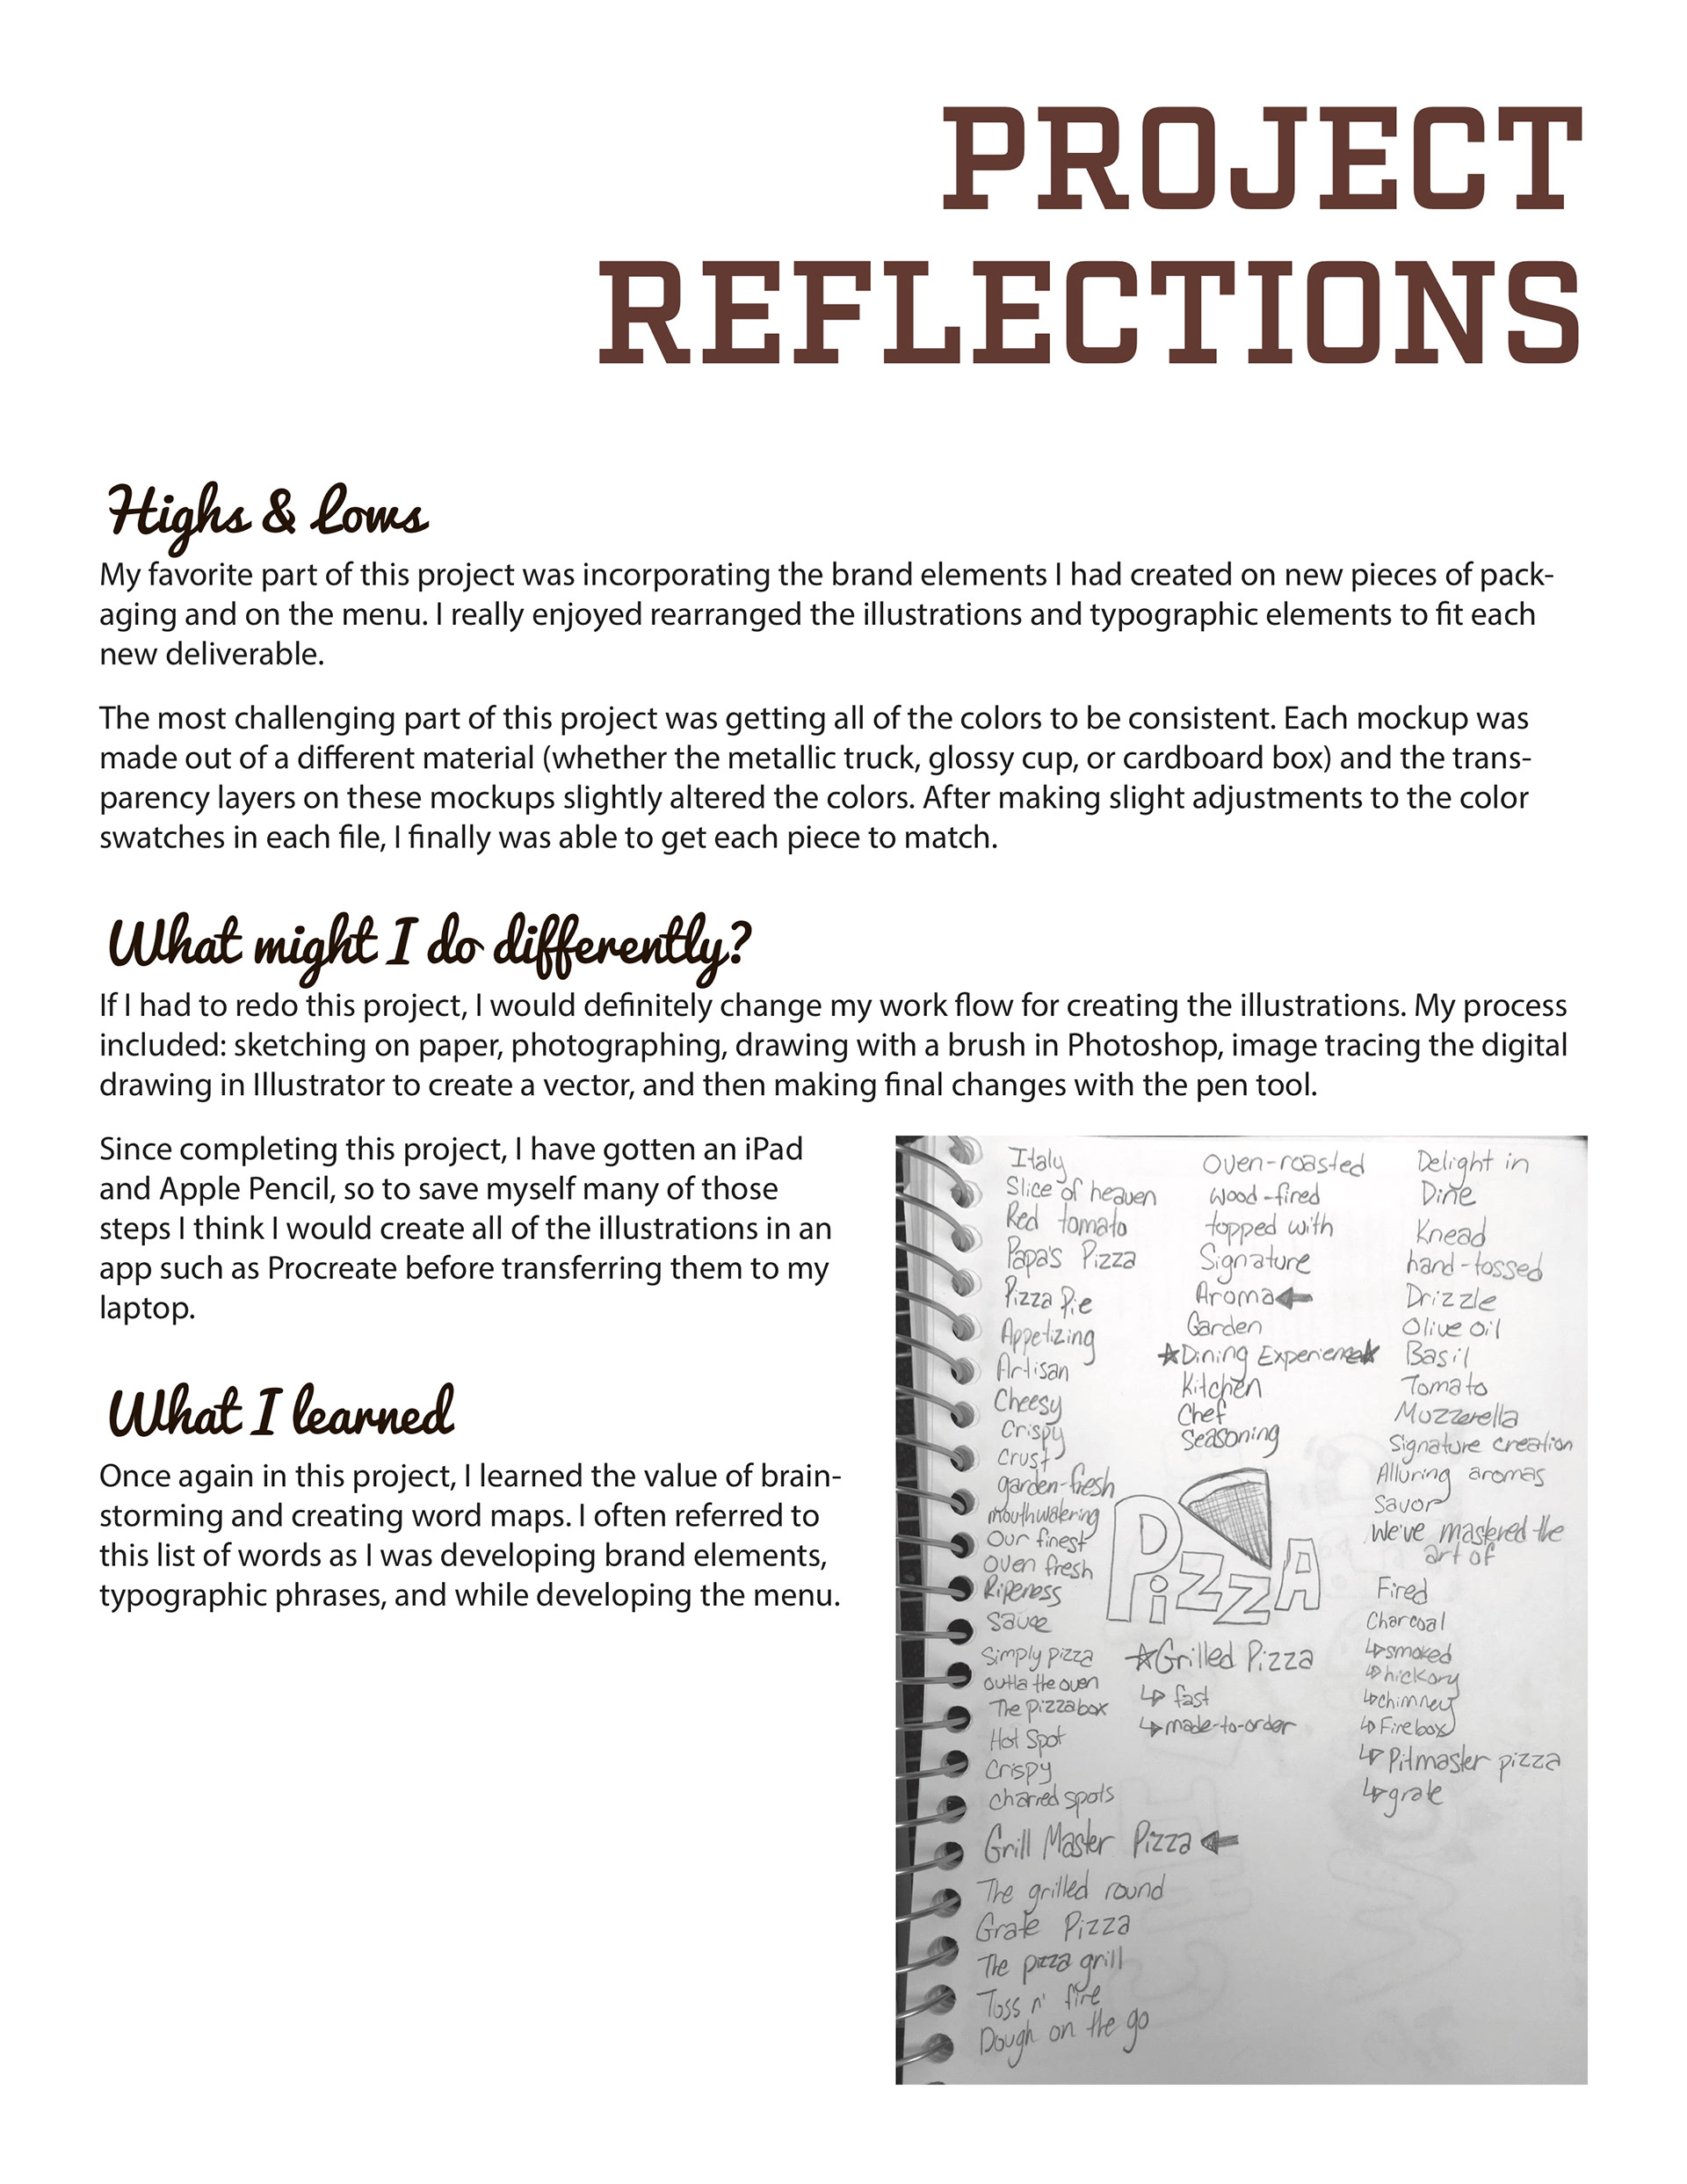 PROJECT
REFLECTIONS
Highs & Lows
My favorite part of this project was incorporating the brand elements I had created on new pieces of pack-
aging and on the menu. I really enjoyed rearranged the illustrations and typographic elements to fit each
new deliverable.
The most challenging part of this project was getting all of the colors to be consistent. Each mockup was
made out of a different material (whether the metallic truck, glossy cup, or cardboard box) and the trans-
parency layers on these mockups slightly altered the colors. After making slight adjustments to the color
swatches in each file, I finally was able to get each piece to match.
What might I do differently?
If I had to redo this project, I would definitely change my work flow for creating the illustrations. My process
included: sketching on paper, photographing, drawing with a brush in Photoshop, image tracing the digital
drawing in Illustrator to create a vector, and then making final changes with the pen tool.
Since completing this project, I have gotten an iPad
and Apple Pencil, so to save myself many of those
steps I think I would create all of the illustrations in an
app such as Procreate before transferring them to my
laptop.
What I learned
Once again in this project, I learned the value of brain-
storming and creating word maps. I often referred to
this list of words as I was developing brand elements,
typographic phrases, and while developing the menu.
Italy
Slice of heaven
Red tomato
Papa's Pizza
Pizza Pie
Appetizing
Artisan
Cheesy
Crispy
Crust
garden-fresh
mouthwatering
Our finest
Oven fresh
Ripeness
Sauce
Simply pizza
outta the oven
The pizza box
Hot Spot
Crispy
charred spots
Grill Master Pizza
The grilled round
Grate Pizza
The pizza grill
Toss n' fire
Dough on the go
Oven-roasted
wood-fired
topped with
Signature
Aroma
Garden
Dining Experience
Kitchen
Chef
Seasoning
PiZZA
Grilled Pizza
fast
made-to-order
Delight in
Dine
Knead
hand-tossed
Drizzle
Olive oil
Basil
Tomato
Mozzerella
Signature creation
Alluring aromas
Savor
We've mastered the
art of
Fired
Charcoal
smoked
hickory
chimney
Firebox
Pitmaster pizza
grate